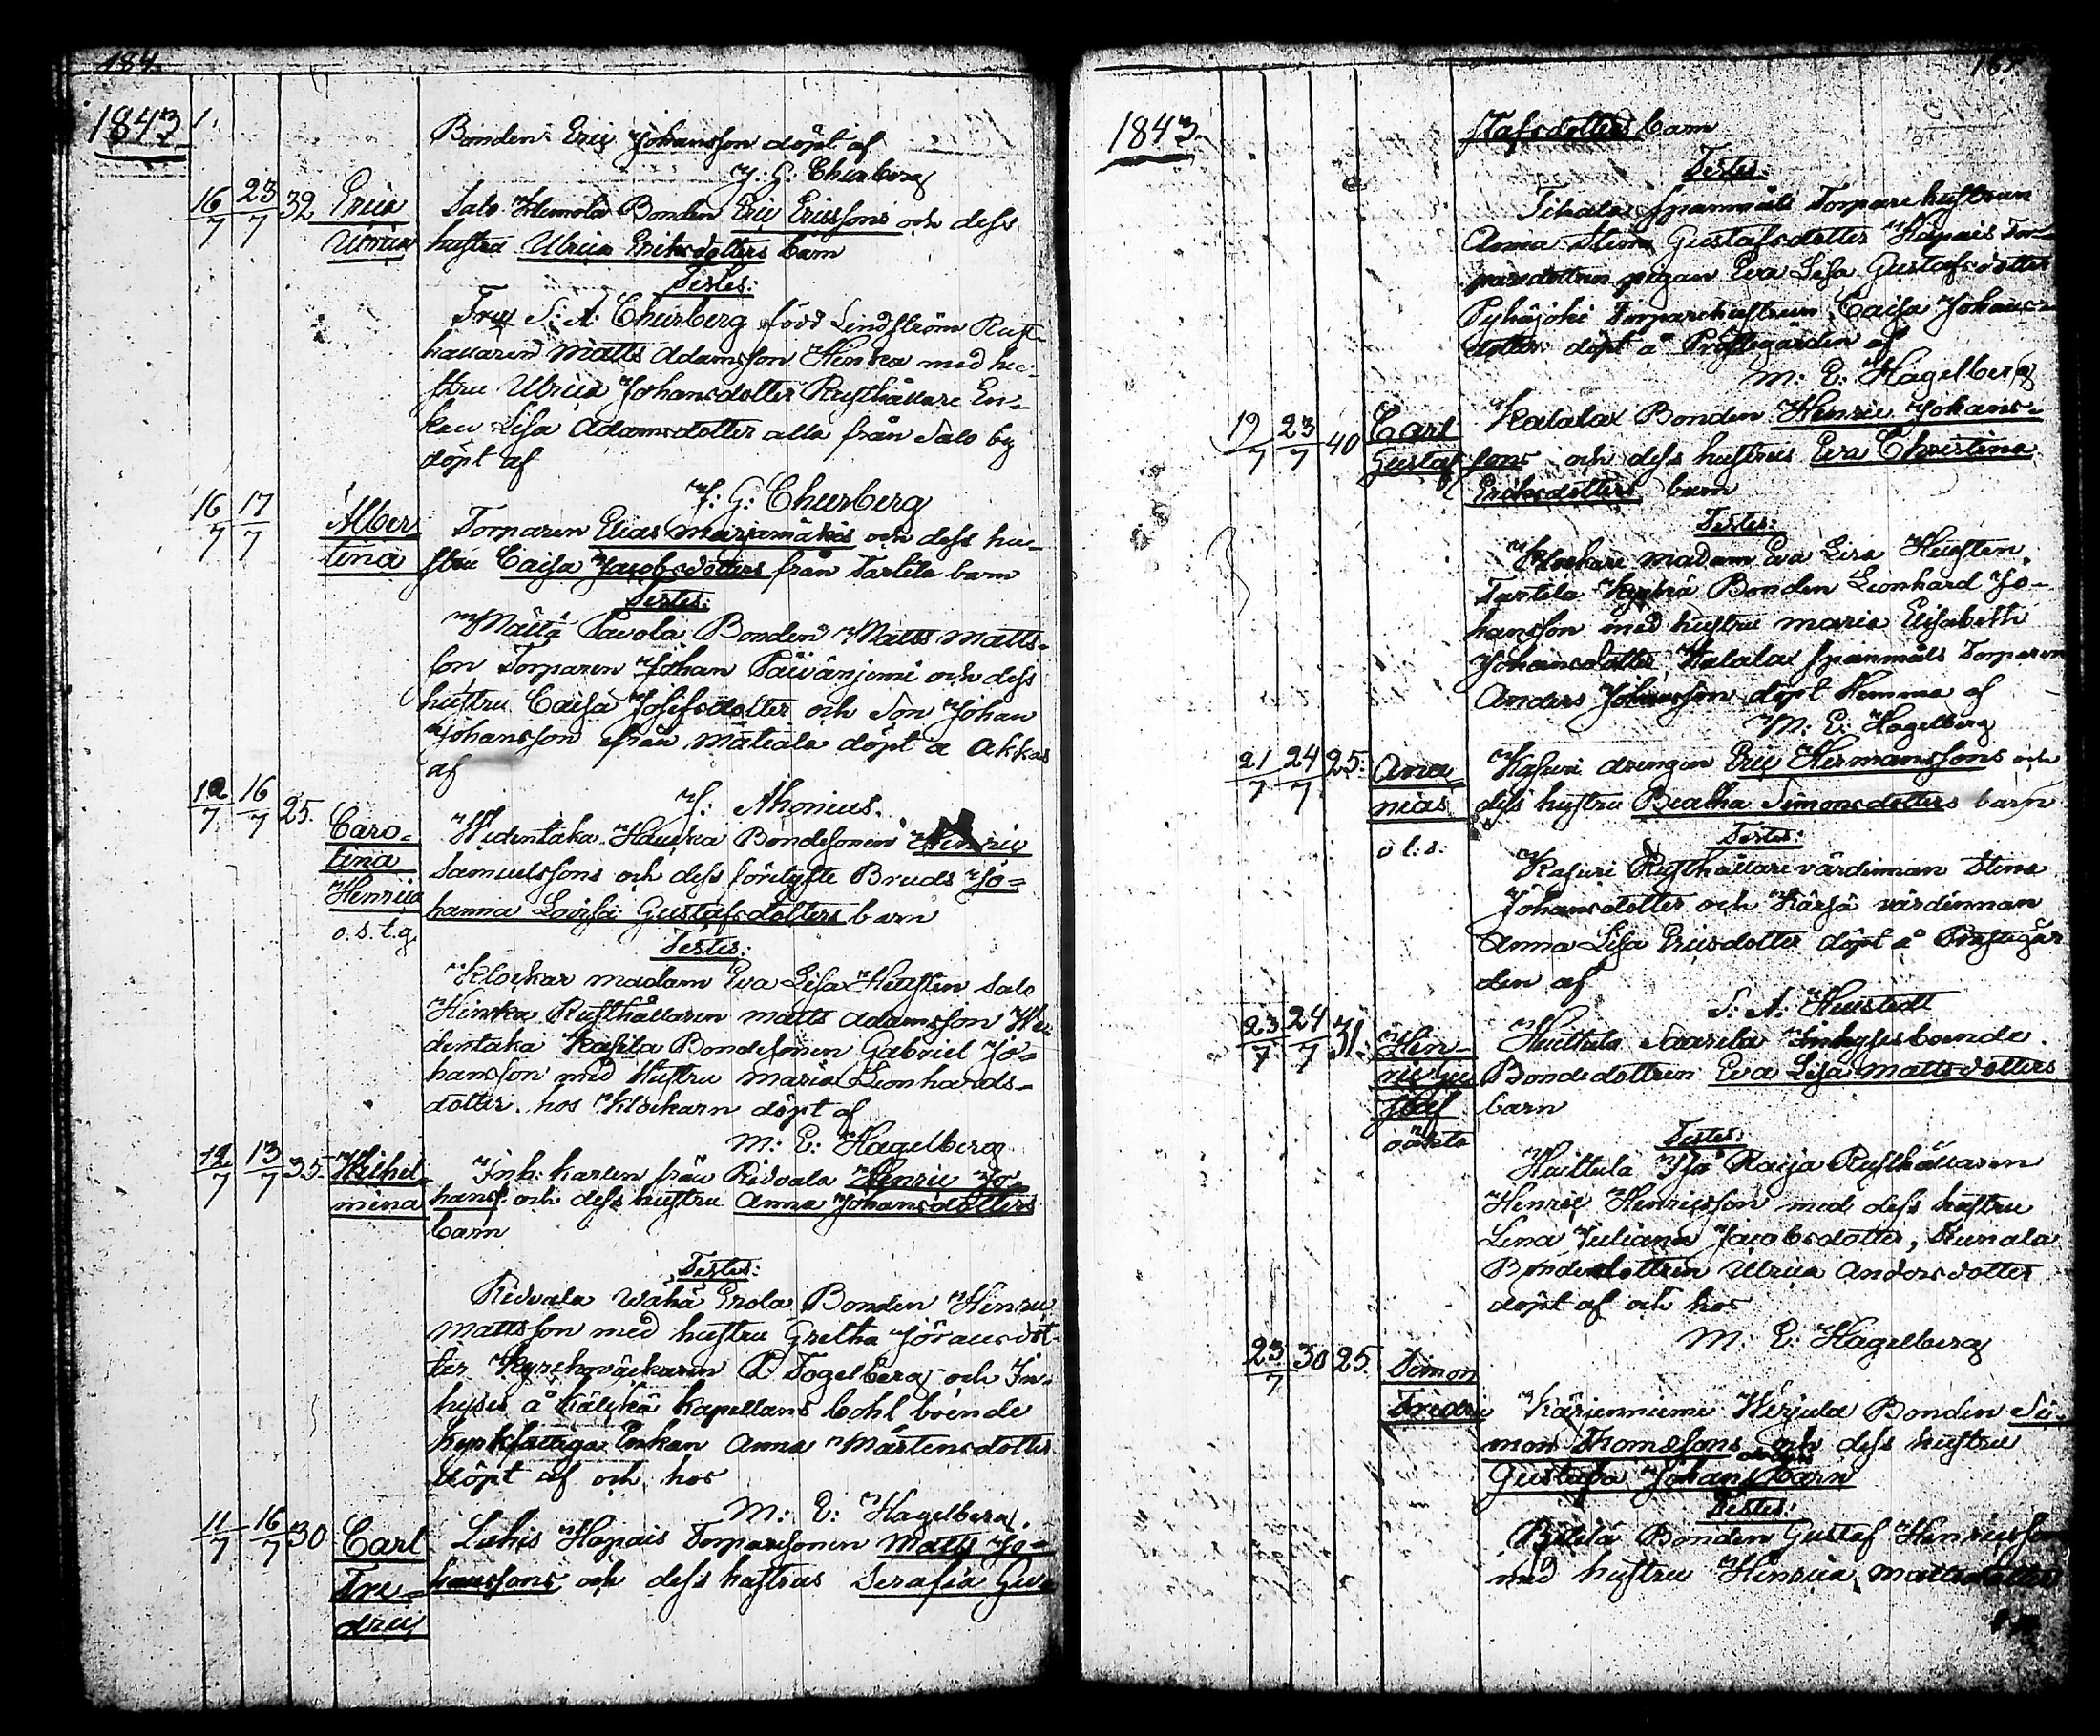 184.
1843
Bonden Eric Johansson döpt af
J: G: Churberg
16/7 23/7 32 Erica
Salo Heinola Bonden Eric Ericssons och dess
Ulrica
hustru Ulrica Eriksdotters barn
Testes:
Fru S: A: Churberg född Lindström Rust-
hållaren Matts Adamsson Hinka med hu-
stru Ulrica Johansdotter Rusthållare En-
kan Lisa Adamsdotter alla från Salo by
döpt af
J: G: Churberg
16/7 17/7 Alber-
Torparen Elias Marjamäkis och dess hu-
tina
stru Caisa Jacobsdotters från Tarkila barn
Testes:
Pavola Bonden Matts Matts-
son Torparen Johan Päivänjemi och dess
hustru Caisa Josefsdotter och Son Johan
Johansson från Matiala döpt a Akkas
af
J: Ahonius.
12/7 16/7 25. Caro-
Widentaka Hauska Bondesonen Henric
lina
Samuelssons och dess förelyste Bruds Jo-
Henrica
hanna Lovisa Gustafsdotters barn
o.s.t.g.
Testes:
Klockar madam Eva Lisa Hursten Salo
Hinka Rusthållaren Matts Adamsson Wi-
dentaka Kasila Bondesonen Gabriel Jo-
hansson med Hustru Maria Leonhards-
dotter hos Klockarn döpt af
M: E: Hagelberg
12/7 13/7 35. Wilhel-
Inh: karlen från Ridvala Henric Jo-
mina
hanss. och dess hustru Anna Johansdotters
barn
Testes:
Ridvala Wähä Erola Bonden Henric
Mattsson med hustru Gretha Göransdot-
ter Kyrckoväcktaren P. Fogelberg och In-
hyses å Kälckä Kapellans bohl boende
Kyrkfattiga Enkan Anna Mårtensdotter
döpt af och hos
M: E: Hagelberg
11/7 16/7 30 Carl
Lukis Hapais Torparesonen Matts Jo-
Fre-
hanssons och dess hustrus Serafia Gus-
dric
165.
1843.
stafsdotters barn
Testes:
Tikala Spanmåls Torpare hustrun
Anna Stina Gustafsdotter Hapais Tor-
paredottren pigan Eva Lisa Gustafsdotter
Pyhäjoki Torparehustrun Caisa Johans-
dotter döpt å Prästegården af
M: E: Hagelberg
19/7 23/7 40 Carl
Katala Bonden Henric Johans-
Gustaf
sons och dess hustrus Eva Christina
Eriksdotters barn
Testes:
Klockare madam Eva Lisa Hursten
Tantila Bonden Leonhard Jo-
hansson med hustru Maria Elisabeth
Johansdotter Katala Spanmåls Torparen
Anders Johansson döpt Hemma af
M: E: Hagelberg
21/7 24/7 25. Ana-
Kasuri drengen Eric Hermanssons och
nias
dess hustru Beatha Simonsdotters barn
o l: s:
Testes:
Kasuri Rusthållarevärdinnan Stina
Johansdotter och Kärjä värdinnan
Anna Lisa Ericsdotter döpt å Prästegår
den af
S: A: Heurstedt
23/7 24/7 31. Hen-
Huittula Saarela Inhysesboende
ric Gu
Bondedottren Eva Lisa Mattsdotters
staf
barn
oäkta
Testes:
Huittula Iso Raija Rusthållaren
Henric Henricsson med dess hustru
Lena Juliana Jacobsdotter, Kurvala
Bondedottren Ulrica Andersdotter
döpt af och hos
M: E: Hagelberg
23/7 30 25. Simon
Fredric
Kärjenniemi Wirjula Bonden Si-
mon Thomassons och dess hustru
Gustafva Johansdotters barn
Testes:
Bonden Gustaf Henricsson
med hustru Henrica Mattsdotter